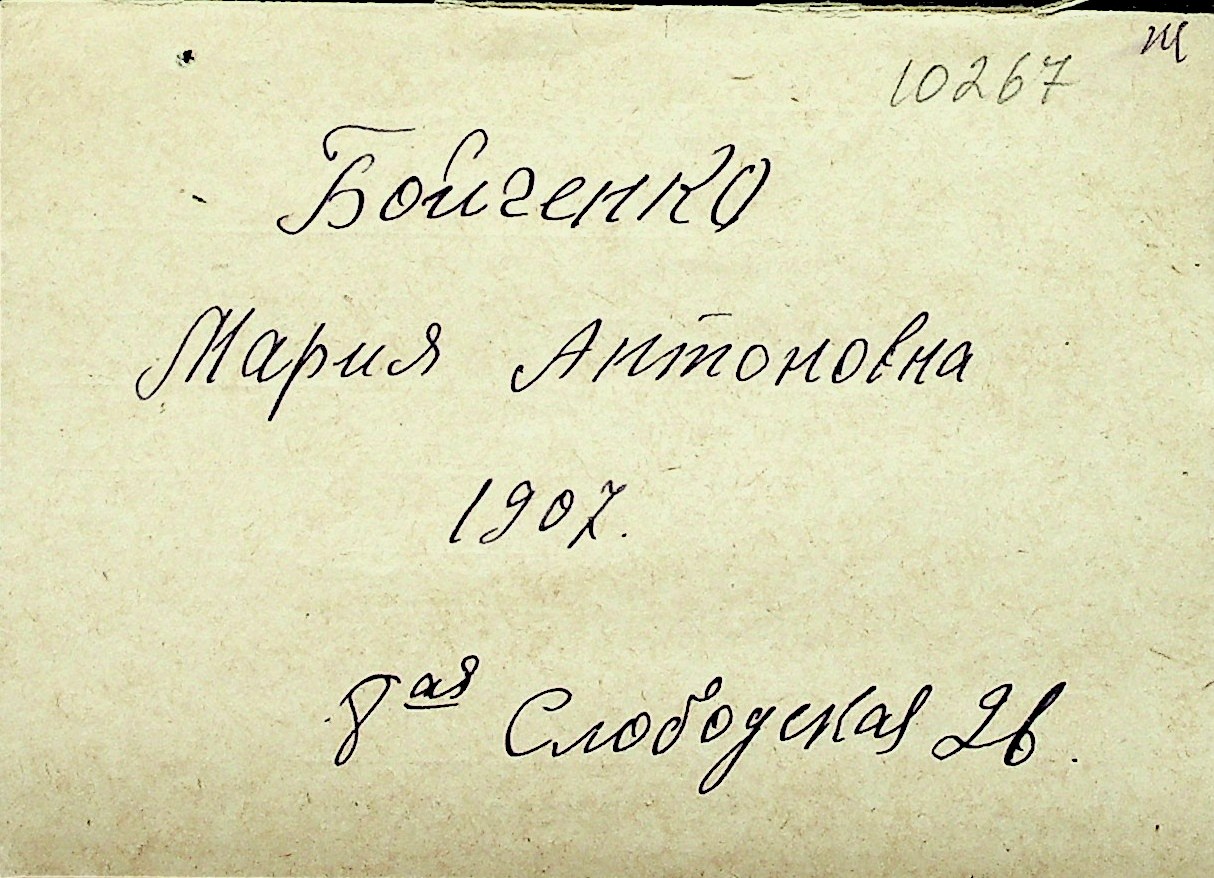 10267 Щ
Бойченко
Мария Антоновна
1907.
8ая Слободская 2в.